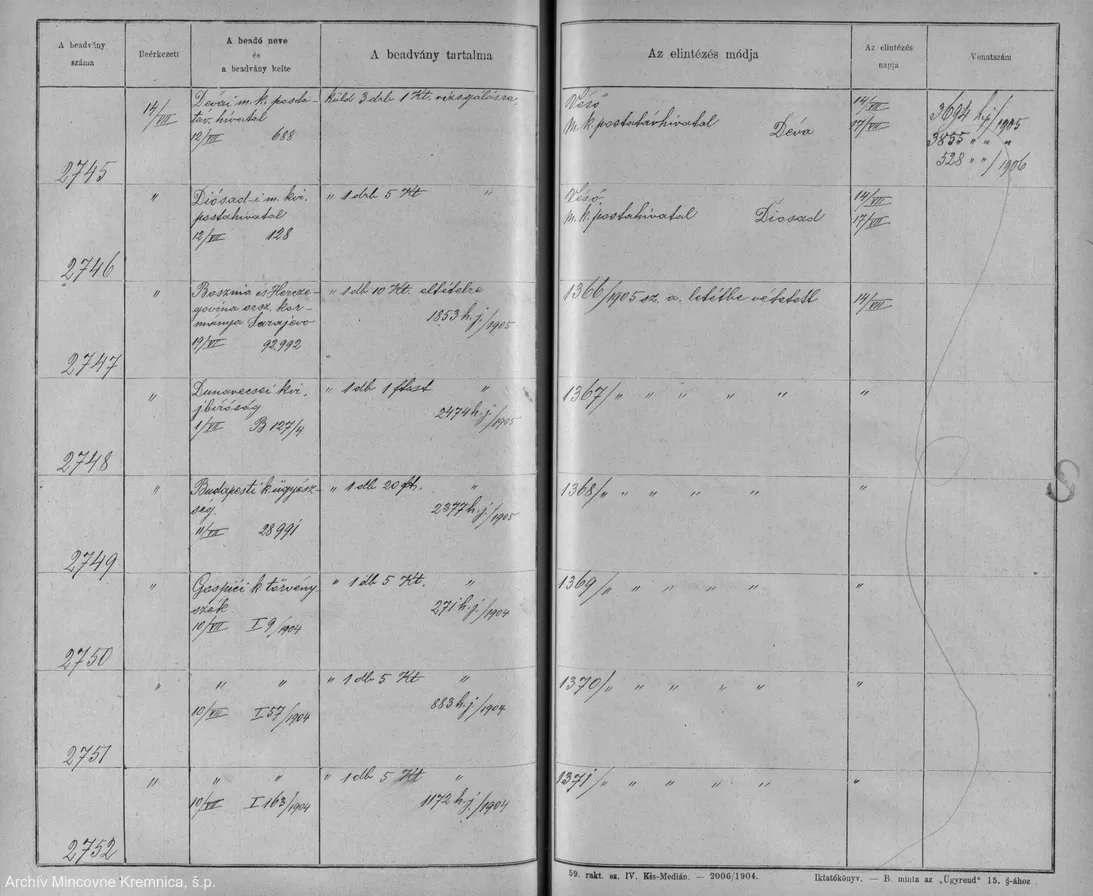 A beadvány
száma
Beérkezett
A beadó neve
és
a beadvány kelte
A beadvány tartalma
Az elintézés módja
Az elintézés
napja
Vonatszám
2745
14/VII
Dévai m. k. posta-
táv. hivatal
12/VII 688
Küld 3 drb 1 Kt. vizsgálásra
Véső
M. k. postatávhivatal Déva
14/VII
17/VII
3694 h.j./1905
3855 " " "
528 " "/1906
2746
"
Diósad-i m. kir.
postahivatal
12/VII 128
" 1 drb 5 Kt "
Véső
m. k. postahivatal Diósad
14/VII
17/VII
2747
"
Bosznia és Hercze-
govina orsz. kor-
mánya Sarajevo
92992
" 1 db 10 Kt.
1853 h.j./1905
1366/1905 sz. a. letétbe vétetett
2748
"
Dunavecsei kir.
jbíróság
1/VII B 127/4
" 1 db 1 "
2474 h.j./1905
1367/" " " " "
"
2749
"
Budapesti k. ügyész-
ség
11/VII 28991
" 1 db 20 "
2377 h.j./1905
1368/" " " " "
"
2750
"
Gospići k. törvény
szék
10/VII I 9/1904
" 1 db 5 Kt. "
271 h.j./1904
1369/" " " " "
"
2751
"
" "
10/VII I 57/1904
" 1 db 5 Kt "
883 h.j./1904
1370/" " " " "
"
2752
"
" "
10/VII I 163/1904
" 1 db 5 Kt "
1172 h.j./1904
1371/" " " " "
"
59. rakt. sz. IV. Kés-Medián. — 2006/1904.
Iktatókönyv. — B. minta az „Ügyrend" 15. §-ához
Archív Mincovne Kremnica, š.p.